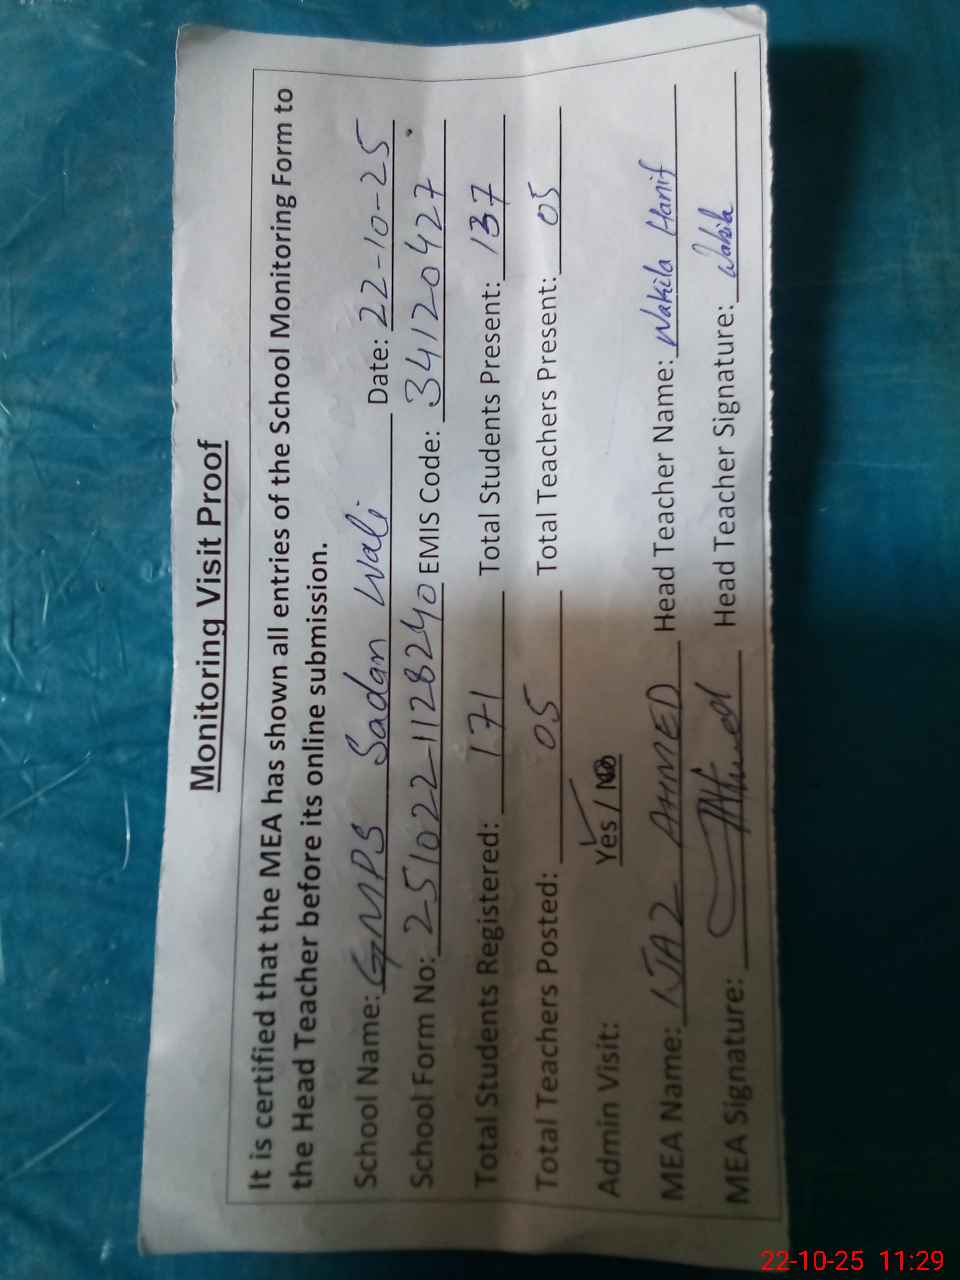 Monitoring Visit Proof
It is certified that the MEA has shown all entries of the School Monitoring Form to
the Head Teacher before its online submission.
School Name: GMPS Sadan Wali Date: 22-10-25
School Form No: 251022-1128240 EMIS Code: 34120427
Total Students Registered: 171 Total Students Present: 137
Total Teachers Posted: 05 Total Teachers Present: 05
Admin Visit: Yes / No
MEA Name: IJAZ AHMED Head Teacher Name: Wakila Hanif
MEA Signature: Head Teacher Signature: Wakila
22-10-25 11:29